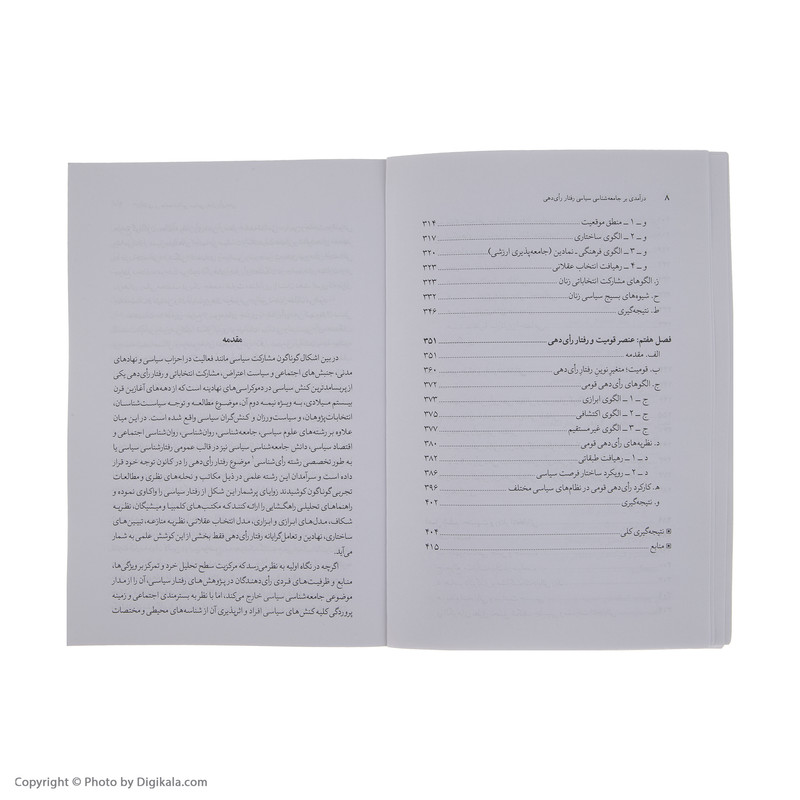 ۸ درآمدی بر جامعه‌شناسی سیاسی رفتار رأی‌دهی
و ـ ۱ ـ منطق موقعیت ۳۱۴
و ـ ۲ ـ الگوی ساختاری ۳۱۷
و ـ ۳ ـ الگوی فرهنگی ـ نمادین (جامعه‌پذیری ارزشی) ۳۲۰
و ـ ۴ ـ رهیافت انتخاب عقلانی ۳۲۳
ز. الگوهای مشارکت انتخاباتی زنان ۳۲۳
ح. شیوه‌های بسیج سیاسی زنان ۳۳۲
ط. نتیجه‌گیری ۳۴۶
فصل هفتم: عنصر قومیت و رفتار رأی‌دهی ۳۵۱
الف. مقدمه ۳۵۱
ب. قومیت؛ متغیر نوین رفتار رأی‌دهی ۳۶۰
ج. الگوهای رأی‌دهی قومی ۳۷۲
ج ـ ۱ ـ الگوی ابرازی ۳۷۳
ج ـ ۲ ـ الگوی اکتشافی ۳۷۵
ج ـ ۳ ـ الگوی غیرمستقیم ۳۷۷
د. نظریه‌های رأی‌دهی قومی ۳۸۰
د ـ ۱ ـ رهیافت طبقاتی ۳۸۲
د ـ ۲ ـ رویکرد ساختار فرصت سیاسی ۳۸۶
ه. کارکرد رأی‌دهی قومی در نظام‌های سیاسی مختلف ۳۹۶
و. نتیجه‌گیری ۴۰۲
نتیجه‌گیری کلی ۴۰۴
منابع ۴۱۵
مقدمه
در بین اشکال گوناگون مشارکت سیاسی مانند فعالیت در احزاب سیاسی و نهادهای
مدنی، جنبش‌های اجتماعی و سیاست اعتراض، مشارکت انتخاباتی و رفتار رأی‌دهی یکی
از پربسامدترین کنش سیاسی در دموکراسی‌های نهادینه است که از دهه‌های آغازین قرن
بیستم میلادی، به ویژه نیمه دوم آن، موضوع مطالعه و توجه سیاست‌شناسان،
انتخابات‌پژوهان، و سیاست‌ورزان و کنش‌گران سیاسی واقع شده است. در این میان
علاوه بر رشته‌های علوم سیاسی، جامعه‌شناسی، روان‌شناسی، روان‌شناسی اجتماعی و
اقتصاد سیاسی، دانش جامعه‌شناسی سیاسی نیز در قالب عمومی رفتارشناسی سیاسی یا
به طور تخصصی رشته رأی‌شناسی۱ موضوع رفتار رأی‌دهی را در کانون توجه خود قرار
داده است و سرآمدان این رشته علمی در ذیل مکاتب و نحله‌های نظری و مطالعات
تجربی گوناگون کوشیدند زوایای پرشمار این شکل از رفتار سیاسی را واکاوی نموده و
راهنماهای تحلیلی راهگشایی را ارائه کنند که مکتب‌های کلمبیا و میشیگان، نظریه
شکاف، مدل‌های ابرازی و ابزاری، مدل انتخاب عقلانی، نظریه منازعه، تبیین‌های
ساختاری، نهادین و تعامل‌گرایانه رفتار رأی‌دهی فقط بخشی از این کوشش علمی به شمار
می‌آید.
اگرچه در نگاه اولیه به نظر می‌رسد که مرکزیت سطح تحلیل خرد و تمرکز بر ویژگی‌ها،
منابع و ظرفیت‌های فردی رأی‌دهندگان در پژوهش‌های رفتار سیاسی، آن را از مدار
موضوعی جامعه‌شناسی سیاسی خارج می‌کند، اما با نظر به بسترمندی اجتماعی و زمینه
پروردگی کلیه کنش‌های سیاسی افراد و اثرپذیری آن از شناسه‌های محیطی و مختصات
Copyright © Photo by Digikala.com